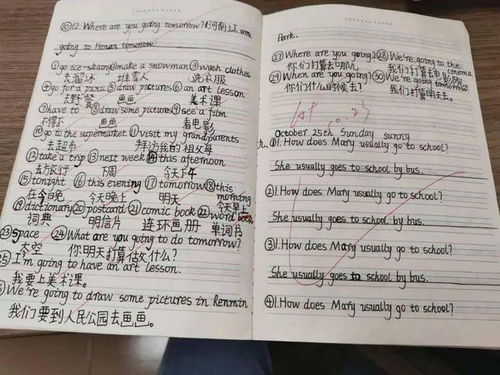 ⑫12. Where are you going tomorrow?(河南) I am
going to Henan tomorrow.
①go ice-skating②make a snowman③wash clothes
去溜冰 堆雪人 洗衣服
④go for a picnic⑤draw pictures⑥an art lesson
去野餐 画画 美术课
⑦have to ⑧draw some pictures⑨see a film
不得不 画画 看电影
⑩go to the supermarket⑪visit my grandparents
去超市 拜访我的祖父母
⑫take a trip⑬next week⑭this afternoon
去旅行 下周 今天下午
⑮tonight ⑯this evening ⑰tomorrow⑱this
morning
在今晚 今天晚上 明天 今天早上
⑲dictionary⑳postcard㉑comic book㉒word book
词典 明信片 连环画册 单词书
㉓space ㉔What are you going to do tomorrow?
太空 你明天打算做什么?
㉕I'm going to have an art lesson.
我要上美术课。
We're going to draw some pictures in Renmin
我们要到人民公园去画画。
Park.
㉗Where are you going?㉘We're going to the
cinema
你们打算去哪儿? 我们打算去电影院
㉙When are you going?㉚We're going tomorrow.
你们什么时候去? 我们打算明天去。
October 25th Sunday sunny
①1.How does Mary usually go to school?
She usually goes to school by bus.
②1.How does Mary usually go to school?
She usually goes to school by bus.
③1.How does Mary usually go to school?
She usually goes to school by bus.
④1.How does Mary usually go to school?